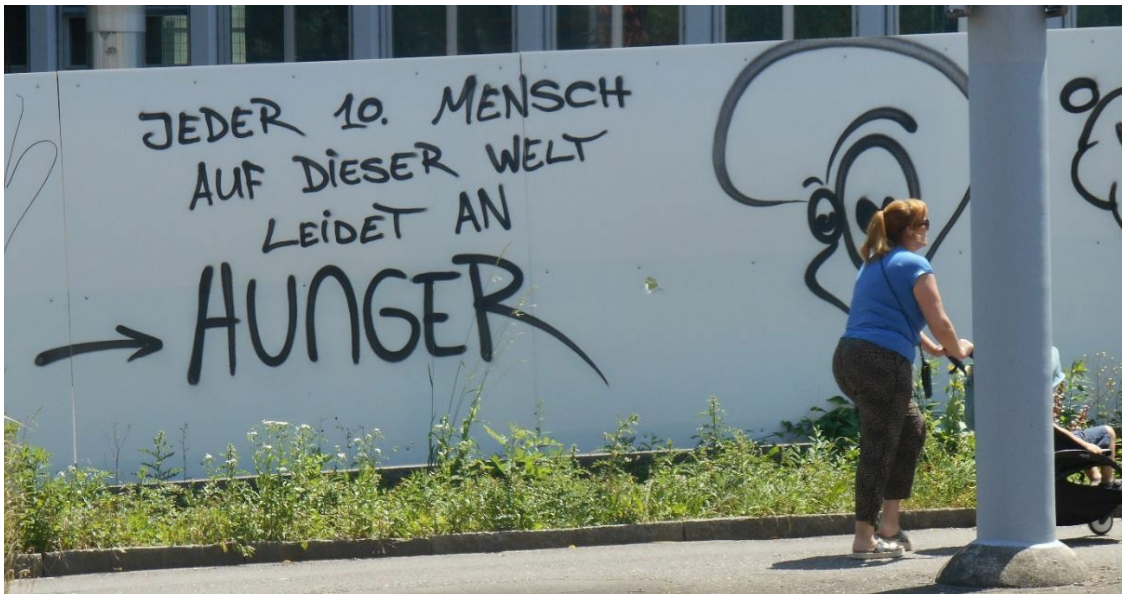 JEDER 10. MENSCH
AUF DIESER WELT
LEIDET AN
HUNGER